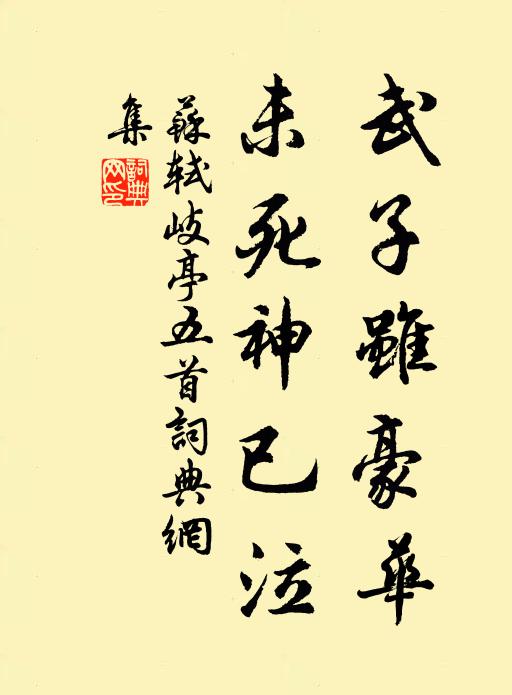 武子雖豪華
未死神已泣
蘇軾岐亭五首詞典網
集
詞典
网印